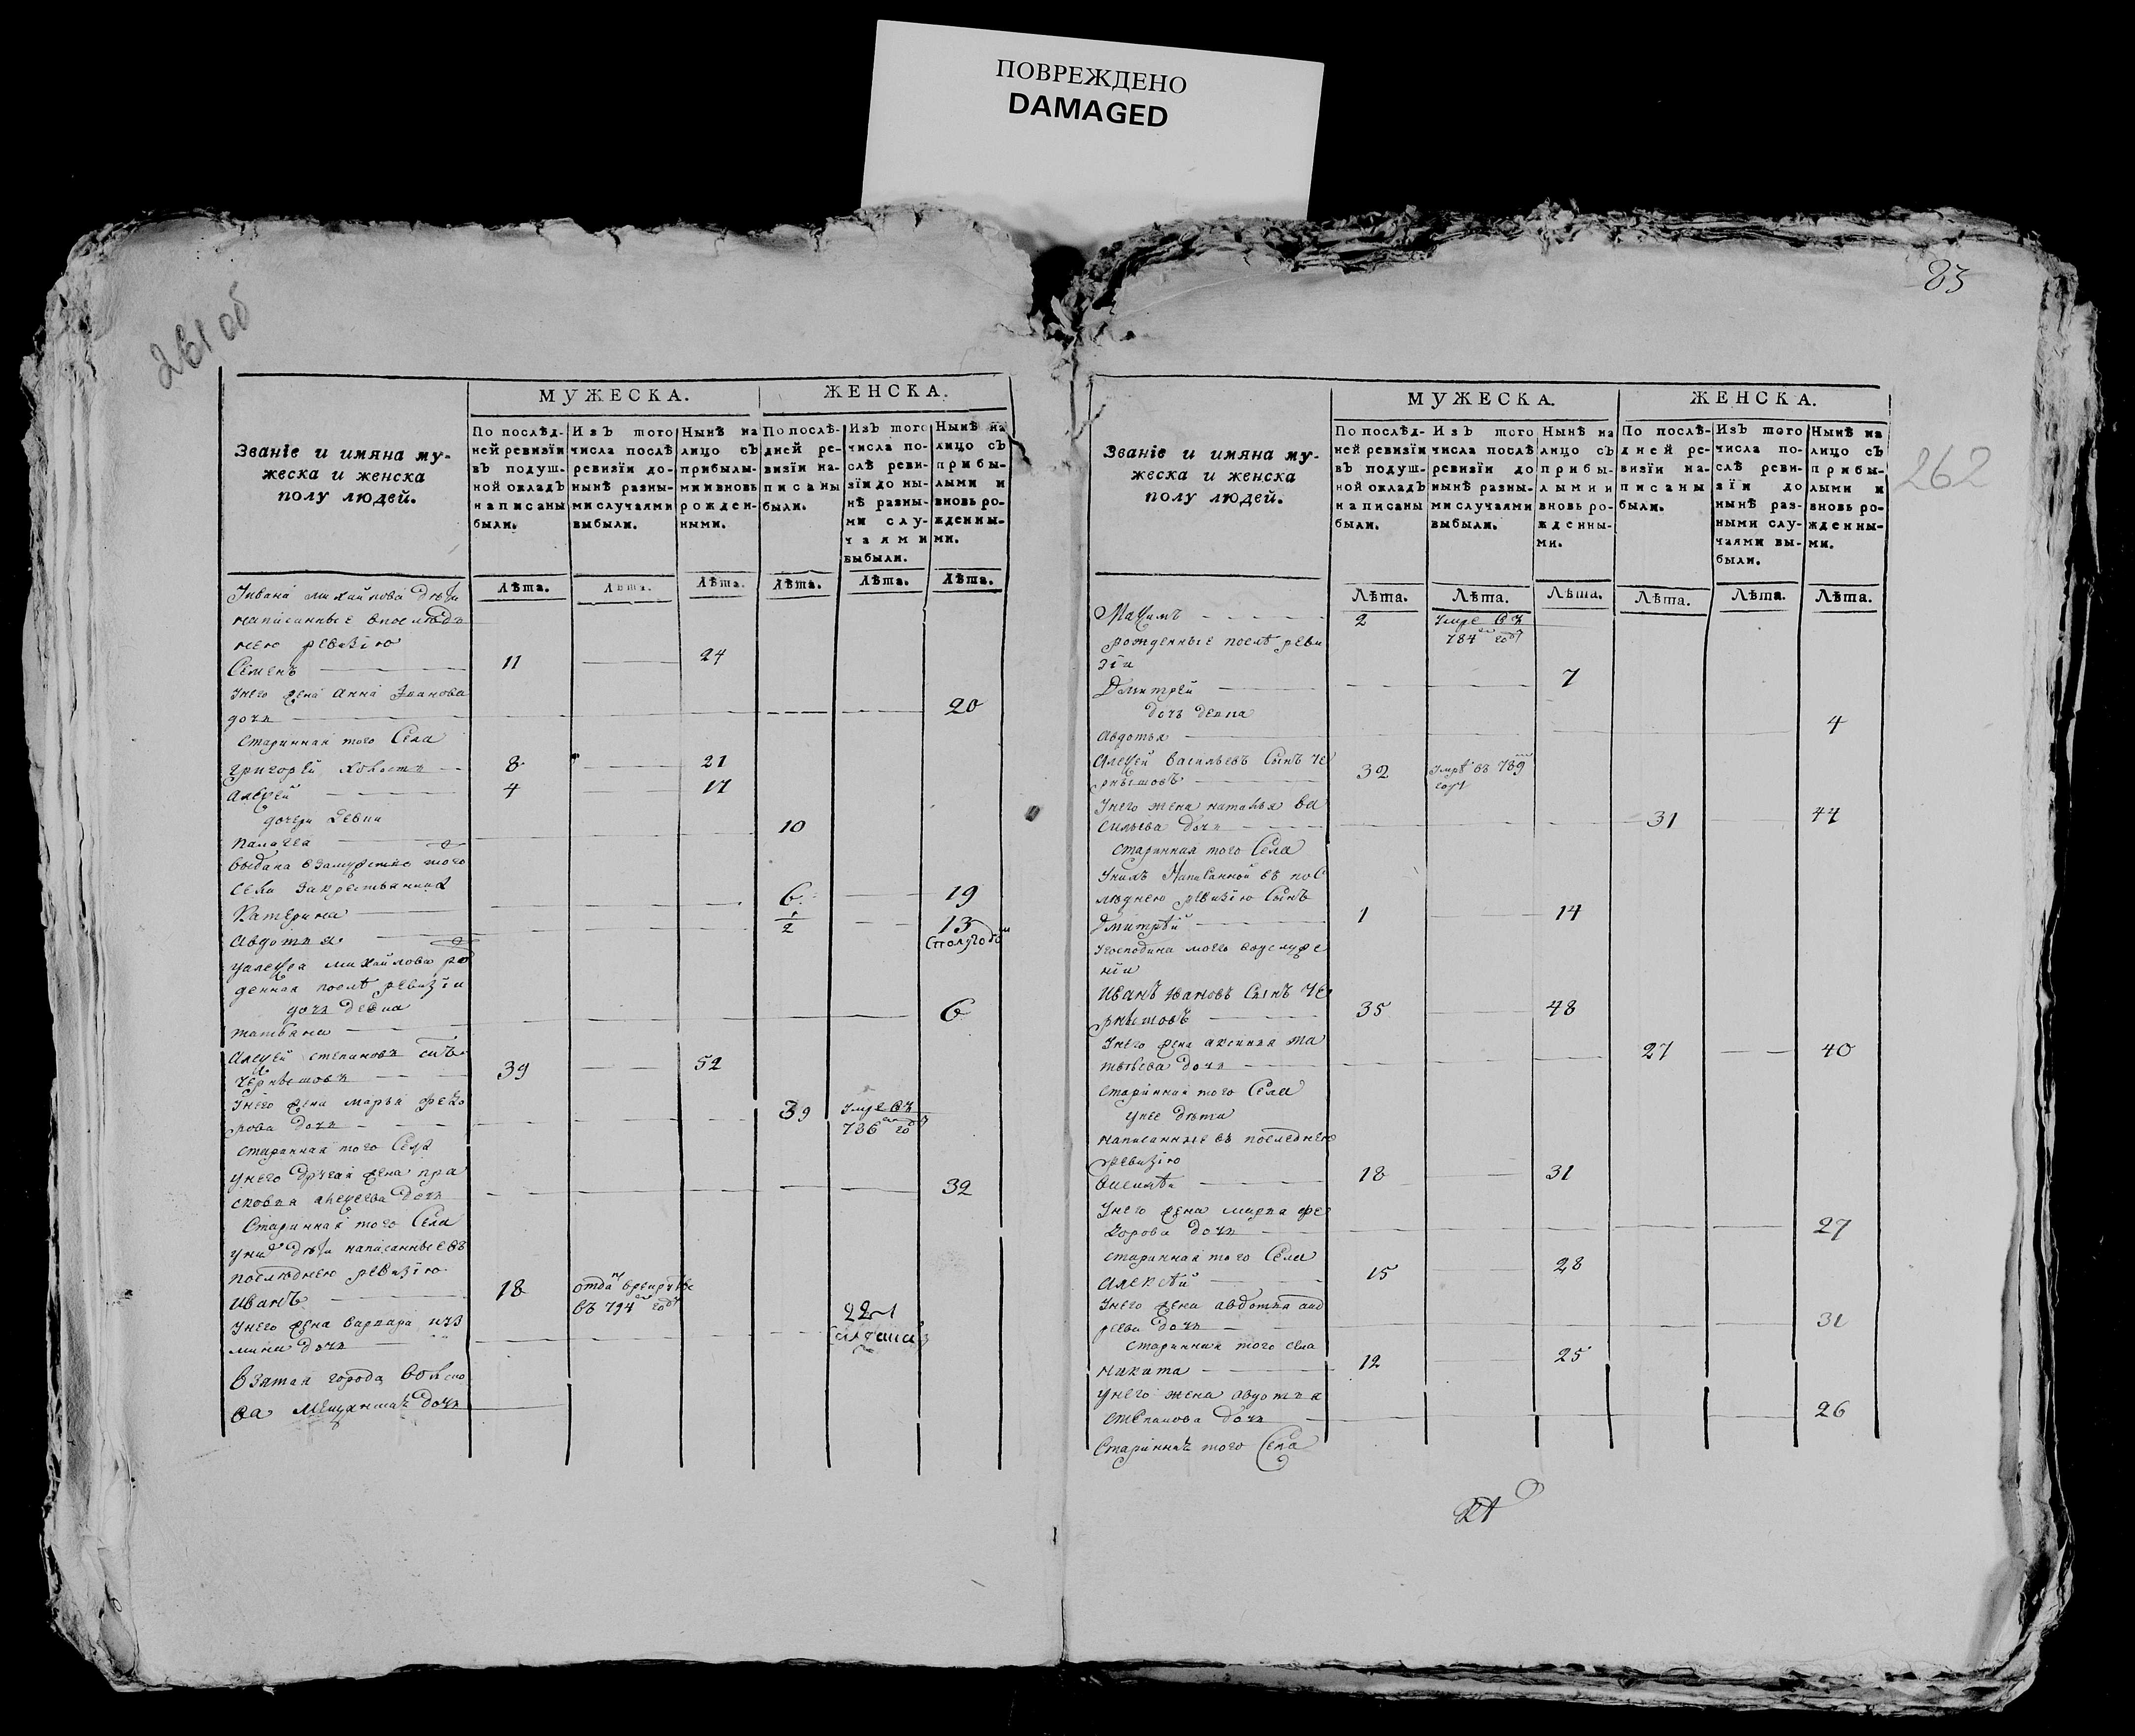 ПОВРЕЖДЕНО
DAMAGED
261 об
Званіе и имяна му-
жеска и женска
полу людей.
МУЖЕСКА.
ЖЕНСКА.
По послѣд-
ней ревизіи
въ подуш-
ной окладъ
написаны
были.
Изъ того
числа послѣ
ревизіи до-
нынѣ разны-
ми случаями
выбыли.
Нынѣ на
лицо съ
прибылы-
ми и вновь
рожден-
ными.
По послѣ-
дней ре-
визіи на-
писаны
были.
Изъ того
числа по-
слѣ реви-
зіи до ны-
нѣ разны-
ми слу-
чаями
выбыли.
Нынѣ на
лицо съ
прибы-
лыми и
вновь ро-
жденны-
ми.
Лѣта. Лѣта. Лѣта. Лѣта. Лѣта. Лѣта.
Ивана михайлова дѣти
написанные впослѣд
нею ревизію
Семенъ 11 24
Унего жена Анна Иванова
дочь 20
старинная того Села
Григорей холостъ 8 21
Алексей 4 17
дочери девки
Палагея 10
выдана взамужство того
Села закрестьянина
Катерина 6 19
Авдотья 1/2 13
споlугодом
уалексея михайлова рож
денная послѣ ревизіи
дочь девка
татьяна 6
Алексей степановъ сынъ
Чернышовъ 39 52
Унего жена марья федо
рова дочь 39 Умре въ
786 году
старинная того Села
унего другая жена пра
сковья алексева дочь 32
Старинная того Села
уних дѣти написанные въ
последнею ревизію
Иванъ 18 отдан врекруты
въ 794 году
Унего жена варвара куз
мина дочь 22
Взятая города Волско
ва Мещанинах дочь
83
262
Званіе и имяна му-
жеска и женска
полу людей.
МУЖЕСКА.
ЖЕНСКА.
По послѣд-
ней ревизіи
въ подуш-
ной окладъ
написаны
были.
Изъ того
числа послѣ
ревизіи до
нынѣ разны-
ми случаями
выбыли.
Нынѣ на
лицо съ
прибы-
лыми и
вновь ро-
жденны-
ми.
По послѣ-
дней ре-
визіи на-
писаны
были.
Изъ того
числа по-
слѣ реви-
зіи до
нынѣ раз-
ными слу-
чаями вы-
были.
Нынѣ на
лицо съ
прибы-
лыми и
вновь ро-
жденны-
ми.
Лѣта. Лѣта. Лѣта. Лѣта. Лѣта. Лѣта.
Максимъ 2 Умре въ
784 году
рожденные послѣ реви
зіи
Дмитрей 7
дочь девка
Авдотья 4
Алексей васильевъ Сынъ Че
рнышовъ 32 Умре въ 789
году
Унего жена наталья ва
сильева дочь 31 44
старинная того Села
Унихъ Написанной въ пос
леднею ревизію Сынъ
Дмитрѣй 1 14
Угосподина моего воуслуже
ніи
Иванъ Ивановъ Сынъ Че
рнышовъ 35 48
Унего жена аксинья ма
твѣева дочь 27 40
старинная того Села
унее дѣти
написанные въ последнею
ревизію
18 31
Унего жена марья фе
дорова дочь 27
старинная того Села
Алексѣй 15 28
Унего жена авдотья анд
реева дочь 31
старинная того села
Никита 12 25
унего жена авдотья
степанова дочь 26
Старинная того Села